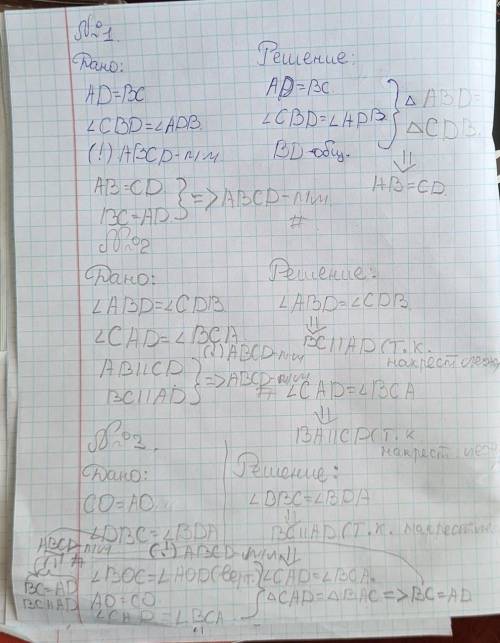 №1.
Дано:
AD=BC
∠CBD=∠ADB.
(!) ABCD-пгм
Решение:
AD=BC.
∠CBD=∠ADB
BD-общ.
△ABD=
△CDB.
⇓
AB=CD.
AB=CD.
BC=AD.
=>ABCD-пгм.
#
№2
Дано:
∠ABD=∠CDB.
∠CAD=∠BCA
(!) ABCD-пгм
AB||CD
BC||AD
=>ABCD-пгм
#
Решение:
∠ABD=∠CDB.
⇓
BC||AD (т.к.
накрест леж
∠CAD=∠BCA
⇓
BA||CD (т.к
накрест леж
№3.
Дано:
CO=AO.
∠DBC=∠BDA
(!) ABCD-пгм
Решение:
∠DBC=∠BDA
⇓
BC||AD (т.к. накрест
⇓
∠BOC=∠AOD (верт.)
AO=CO.
∠CAD=∠BCA
∠CAD=∠BCA.
△CAD=△BAC=>BC=AD
ABCD-пгм
#
BC=AD
BC||AD